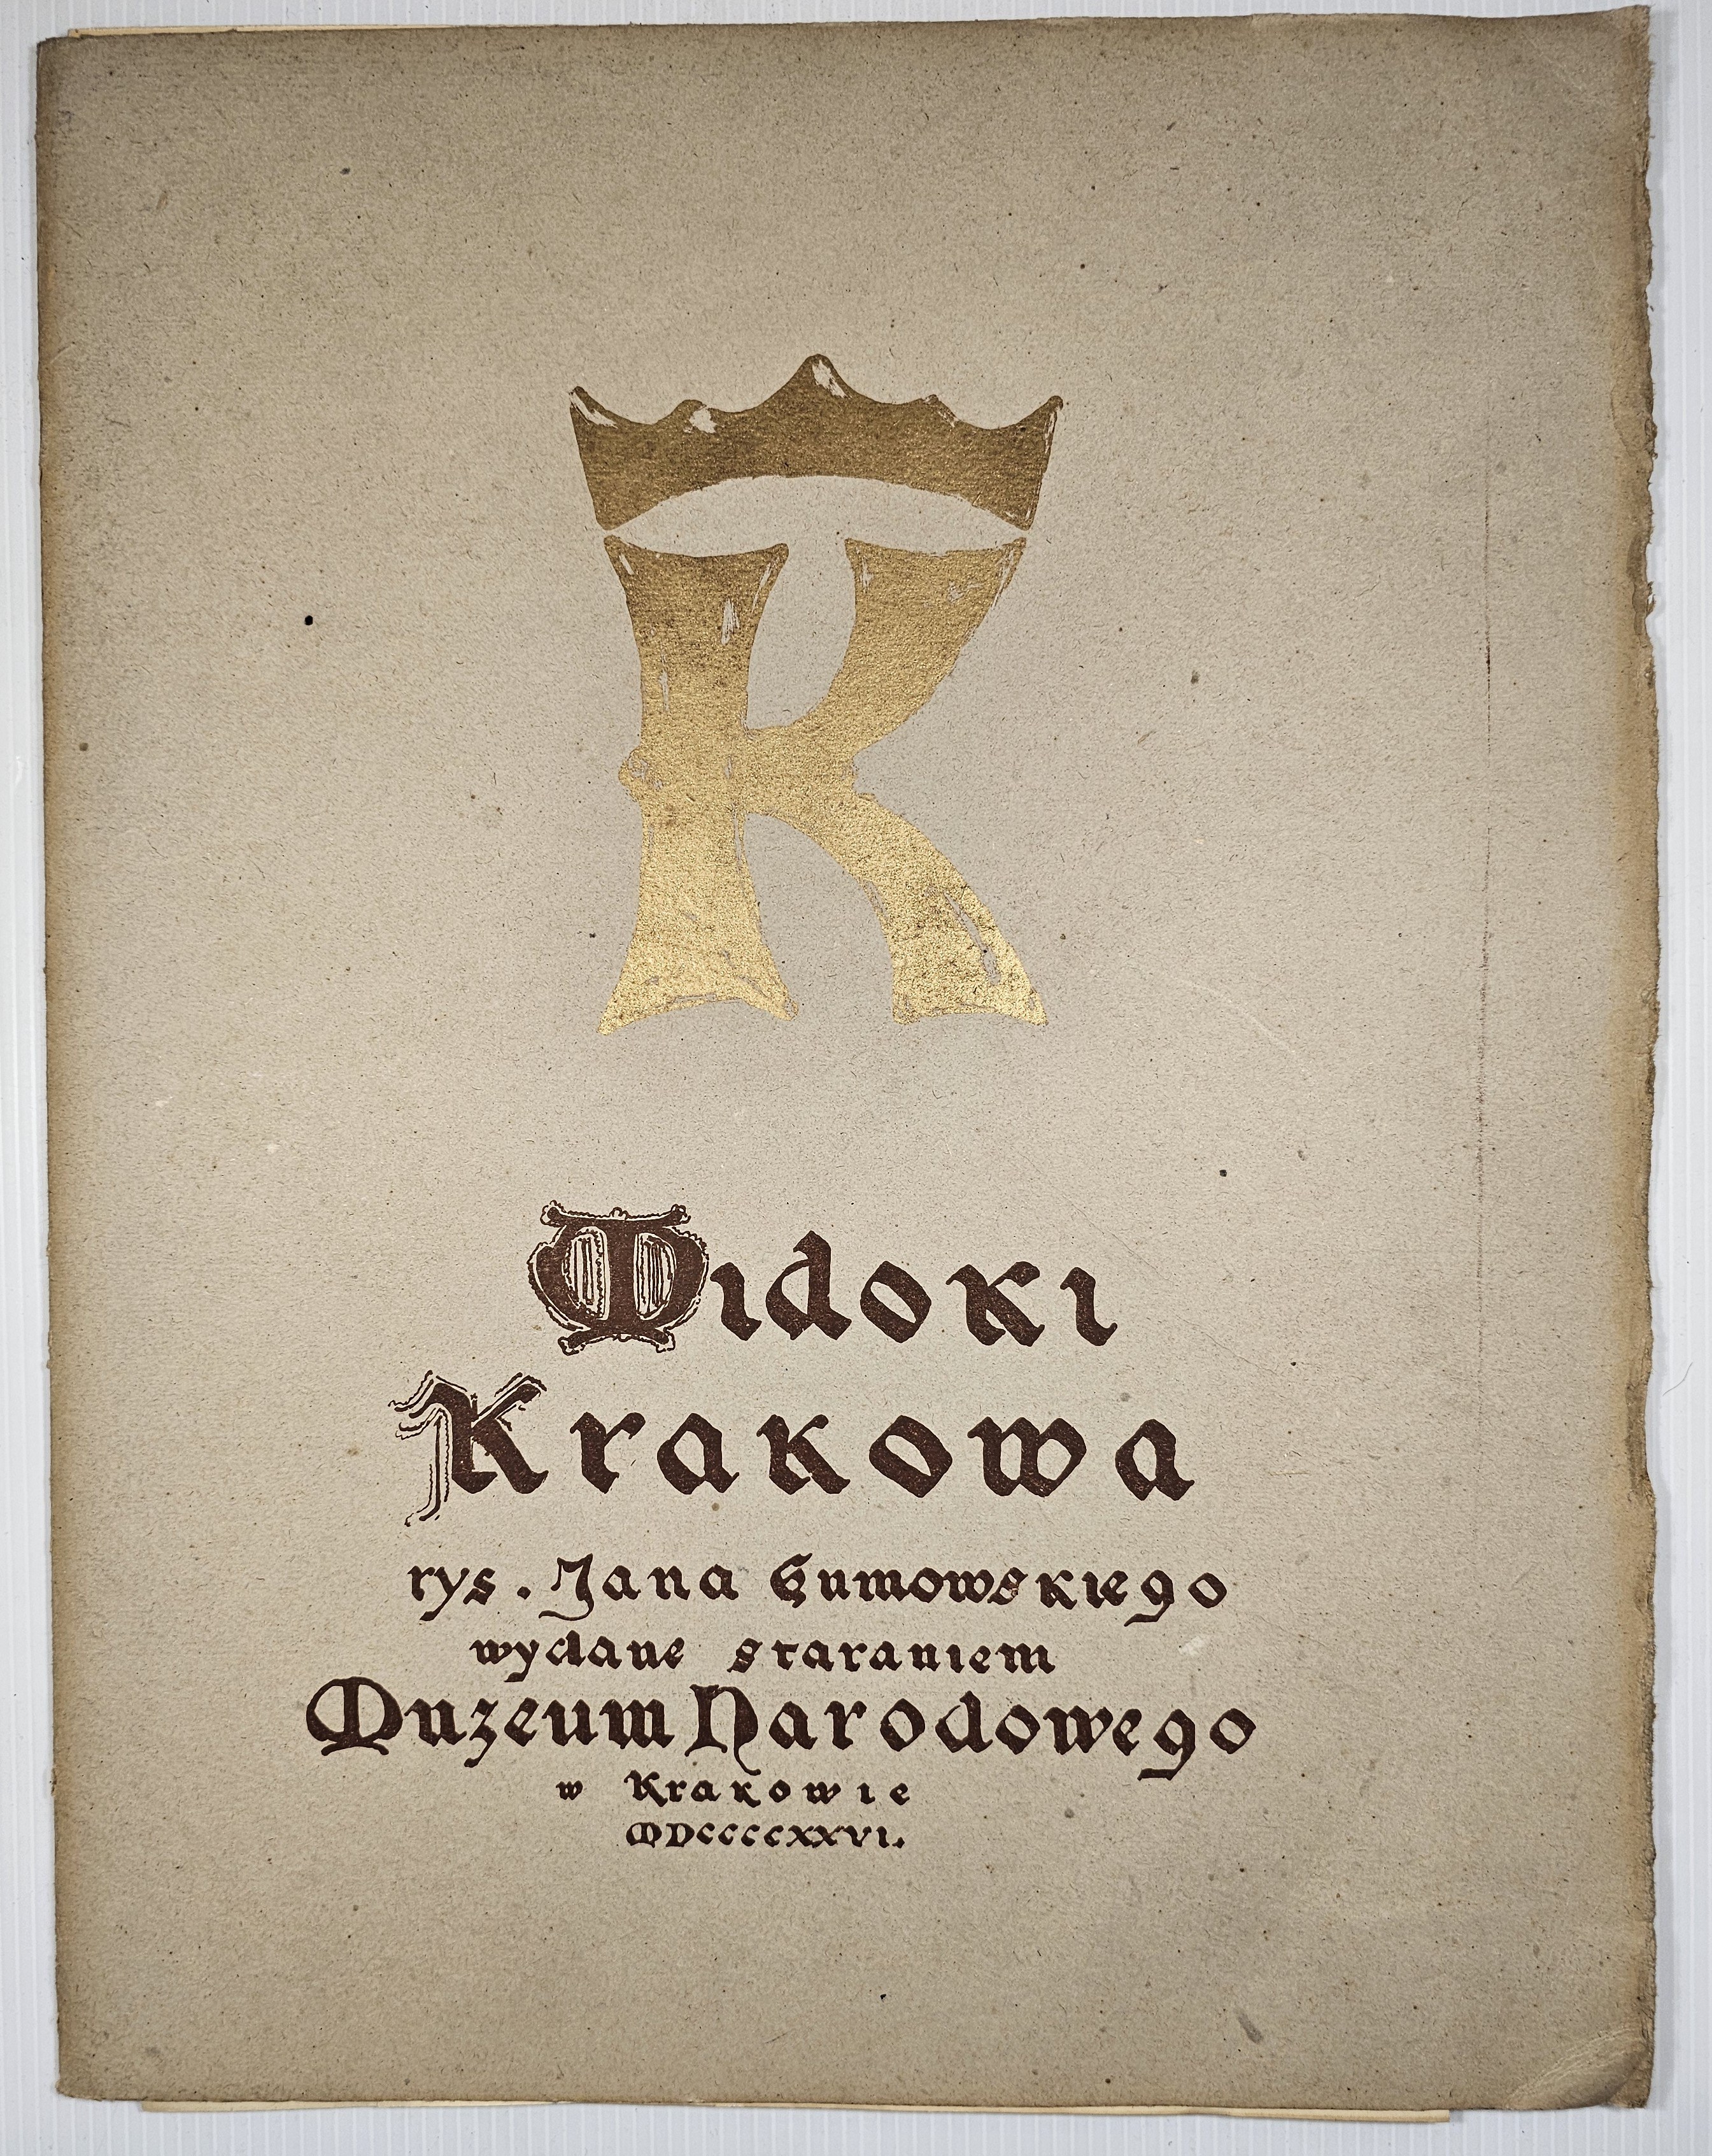 K
Widoki
Krakowa
rys. Jana Gumowskiego
wydane staraniem
Muzeum Narodowego
w Krakowie
MDCCCCXXVI.